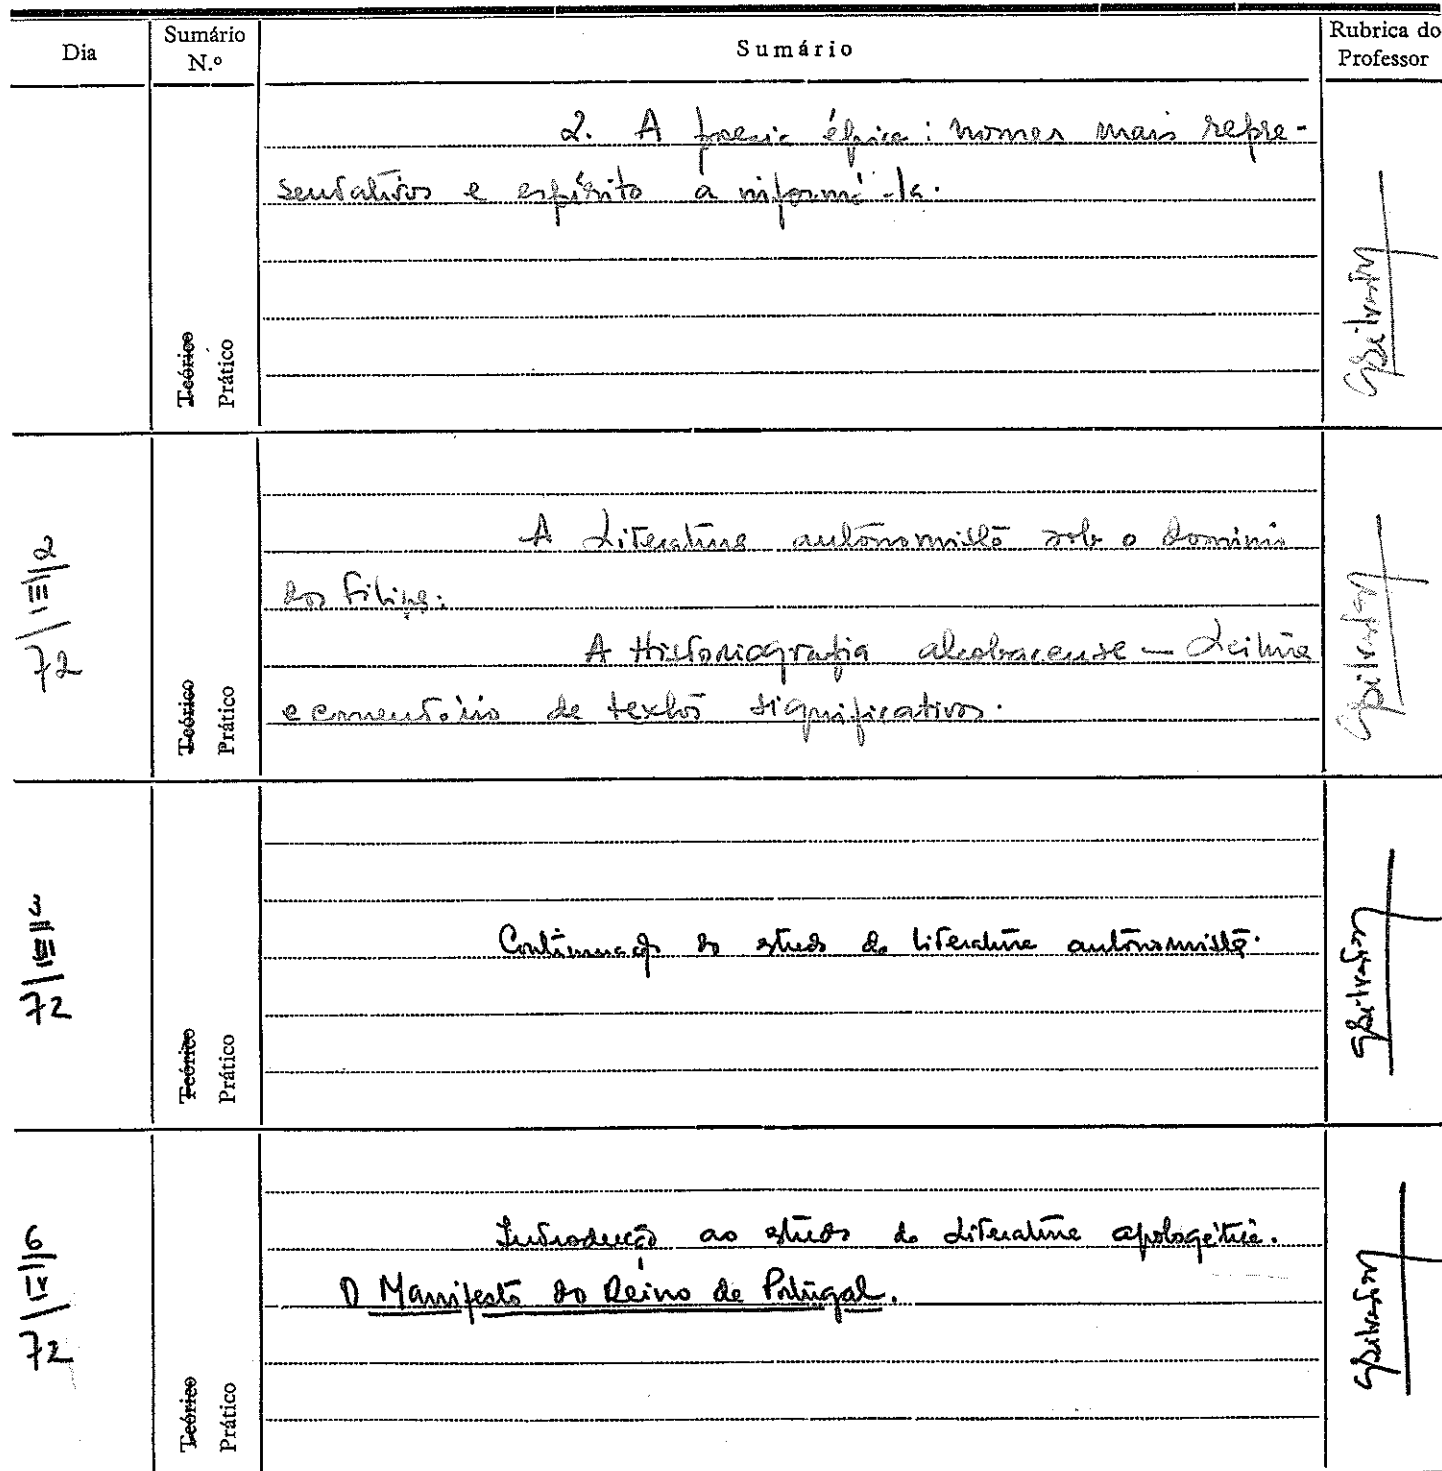 Dia
Sumário N.º
Sumário
Rubrica do Professor
2. A poesia épica: nomes mais repre-
sentativos e espírito a informá-la.
Teórico
Prático
2/III/72
A Literatura autonomista sob o domínio
dos Filipes.
A Historiografia alcobacense — Leitura
e comentário de textos significativos.
Teórico
Prático
3/III/72
Continuação do estudo da literatura autonomista.
Teórico
Prático
6/IV/72
Introdução ao estudo da Literatura apologética.
O Manifesto do Reino de Portugal.
Teórico
Prático